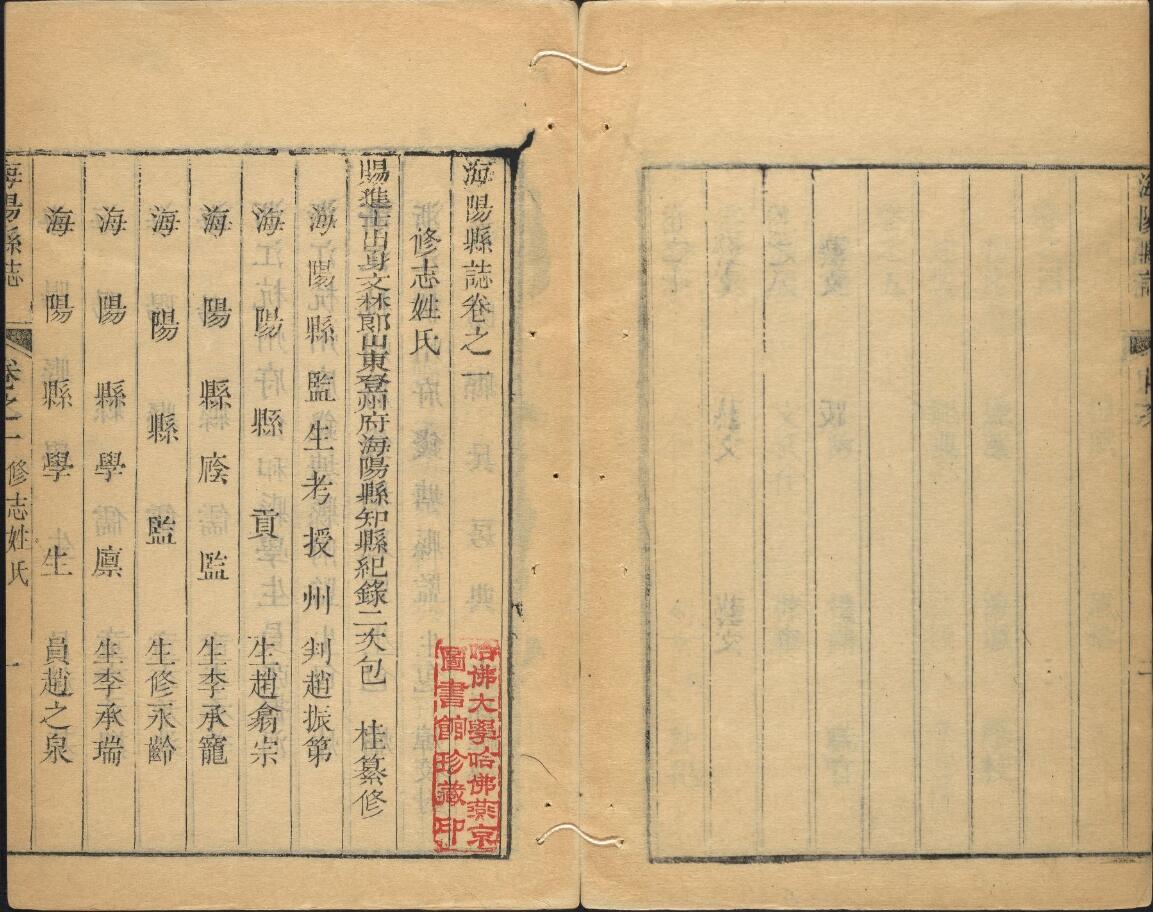 海陽縣誌卷之一
修志姓氏
賜進士出身文林郎山東登州府海陽縣知縣紀錄二次包　桂纂修
海陽縣監生考授州判趙振第
海陽縣貢生趙翕宗
海陽縣廕監生李承寵
海陽縣監生修永齡
海陽縣學儒廪生李承瑞
海陽縣學生員趙之泉
海陽縣誌
卷之一
修志姓氏
一
哈佛大學哈佛燕京
圖書館珍藏印